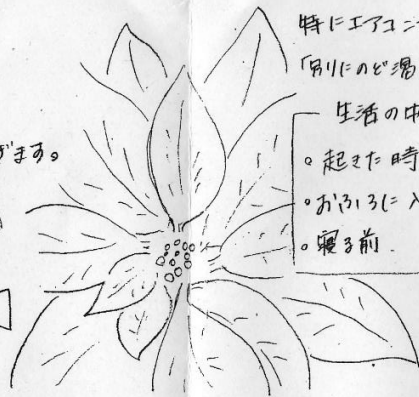 特にエアコン
「別にのど渇
生活の中
ぎます。
。起きた時
・おふろに入
。寝る前.